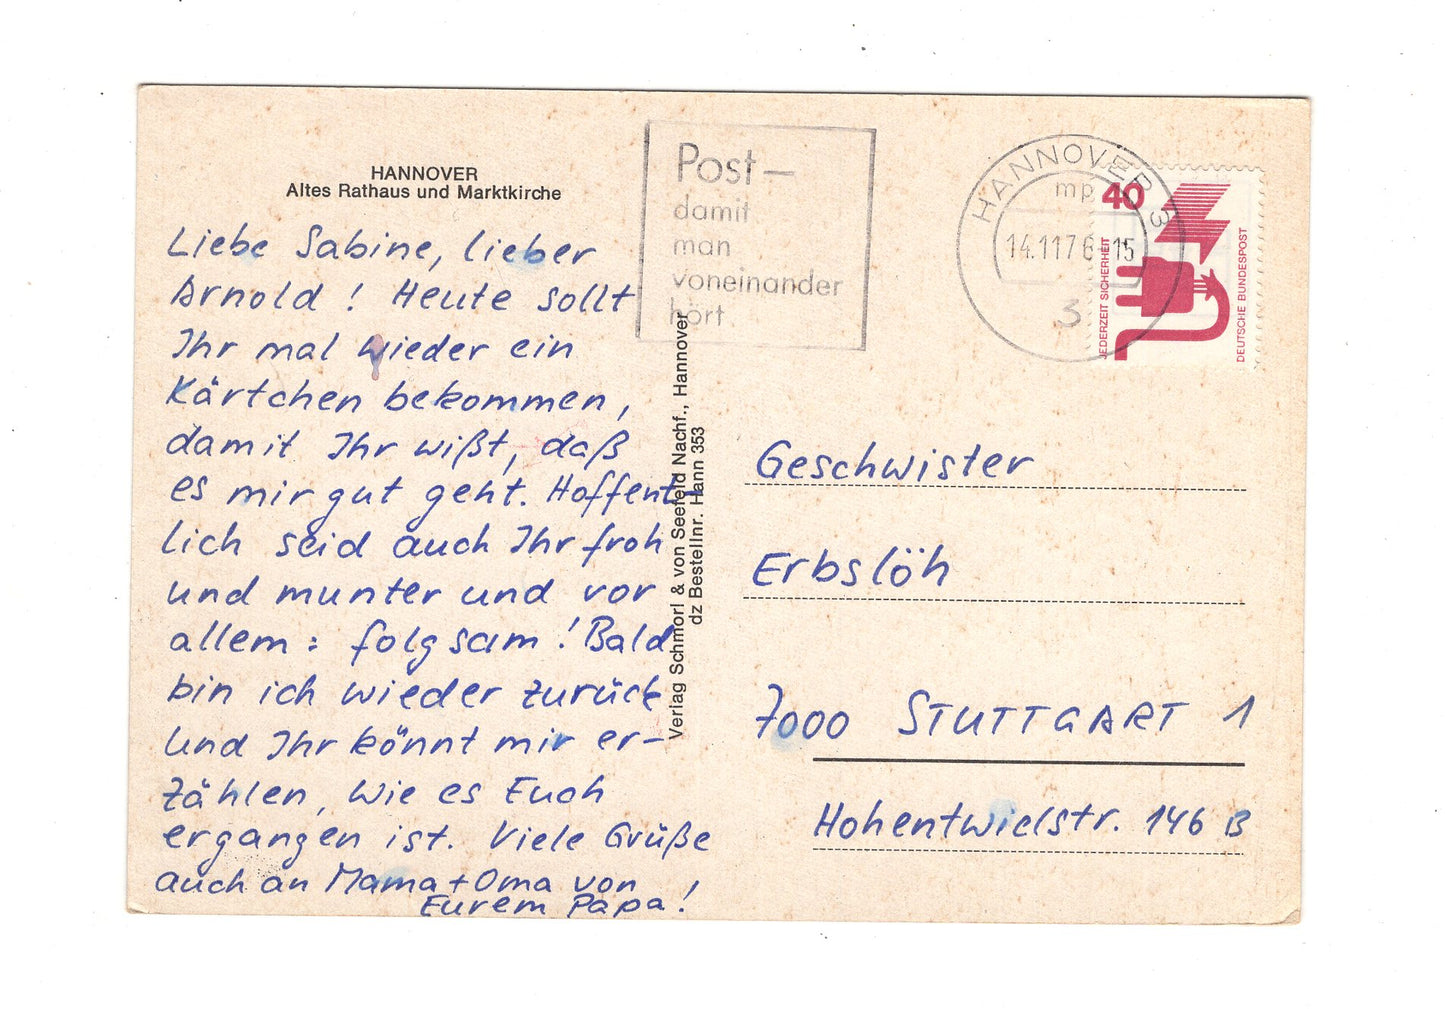 HANNOVER
Altes Rathaus und Marktkirche
Liebe Sabine, lieber
Arnold! Heute sollt
Ihr mal wieder ein
Kärtchen bekommen,
damit Ihr wißt, daß
es mir gut geht. Hoffent-
lich seid auch Ihr froh
und munter und vor
allem: folgsam! Bald
bin ich wieder zurück
und Ihr könnt mir er-
zählen, wie es Euch
ergangen ist. Viele Grüße
auch an Mama + Oma von
Eurem Papa!
Verlag Schmorl & von Seefeld Nachf., Hannover
dz Bestellnr. Hann 353
Post-
damit
man
voneinander
hört
HANNOVER 3
mp
14.11.76-15
3
40
JEDERZEIT SICHERHEIT
DEUTSCHE BUNDESPOST
Geschwister
Erbslöh
7000 STUTTGART 1
Hohentwielstr. 146 B